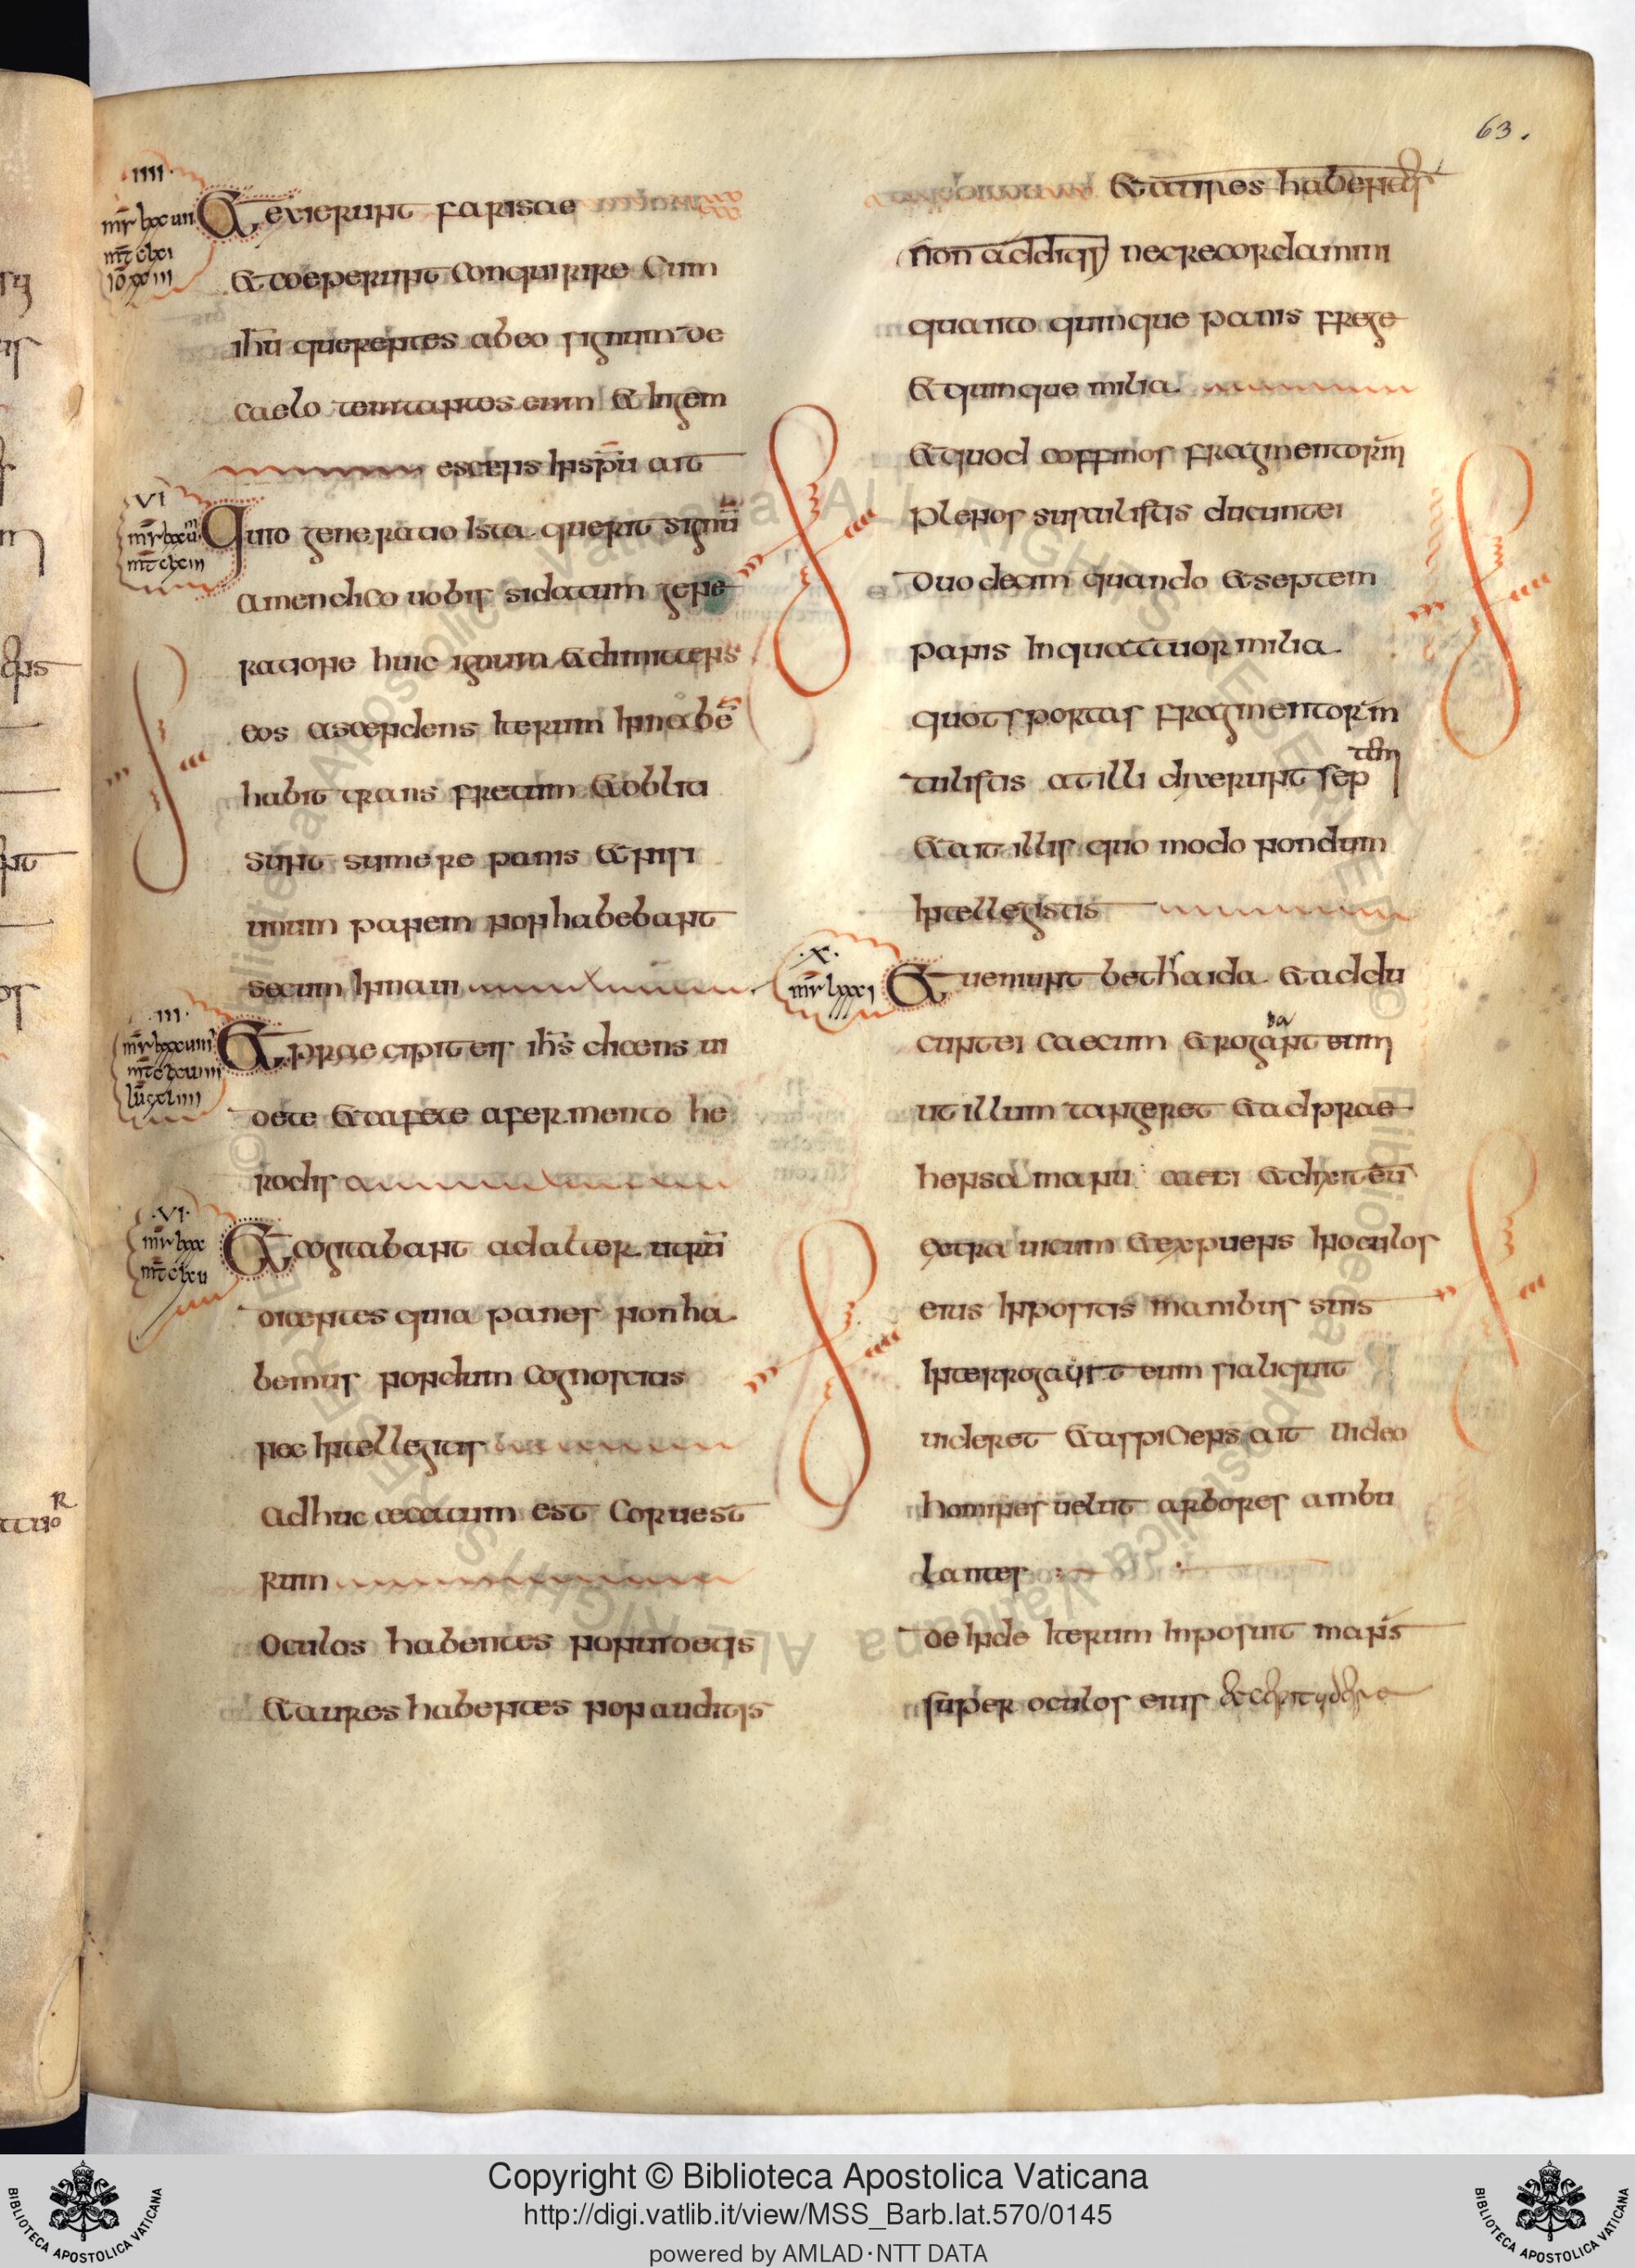 63.
IIII
mr̄ lxxuii
mt̄ clxi
Et exierunt farisae
et coeperunt conquirire cum
ihū querentes ab eo signum de
caelo temtantes eum et ingem
escens in sp̄u ait
VI
mt̄ clxiii
Quid generatio ista querit signū
amen dico uobis si datum gene
ratione huic ignum et dimittens
eos ascendens iterum in nabē
habit trans fretum et obliti
sunt sumere panis et nisi
unum panem non habebant
secum in naui
III
Et praecipit eis ihs̄ dicens ui
dete et cafete a fermento he
rodis
VI
mr̄ lxxx
mt̄ clxu
Et cogitabant ad alter utrū
dicentes quia panes non ha
bemus nondum cognoscitis
nec intellegitis
adhuc cecatum est cor uest
rum
oculos habentes non uidetis
et aures habentes non auditis
et aures habentes
non auditis nec recordamini
quanto quinque panis frege
et quinque milia
et quod coffinos fragmentorum
plenos sustulistis dicunt ei
duodecim quando et septem
panis in quattuor milia
quot sportas fragmentorum
tulistis at illi dixerunt septem
et ait illis quo modo nondum
intellegistis
X
mr̄ lxxxi
Et ueniunt bethsaida et addu
cunt ei caecum et rogabant eum
ut illum tangeret et adprae
hensa manu caeci et dixit eū
extra uicum et expuens in oculos
eius inpositis manibus suis
interrogauit eum si aliquit
uideret et aspiciens ait uideo
homines uelut arbores ambu
lantes
deinde iterum inposuit manus
super oculos eius
Copyright © Biblioteca Apostolica Vaticana
http://digi.vatlib.it/view/MSS_Barb.lat.570/0145
powered by AMLAD·NTT DATA
BIBLIOTECA APOSTOLICA VATICANA
BIBLIOTECA APOSTOLICA VATICANA